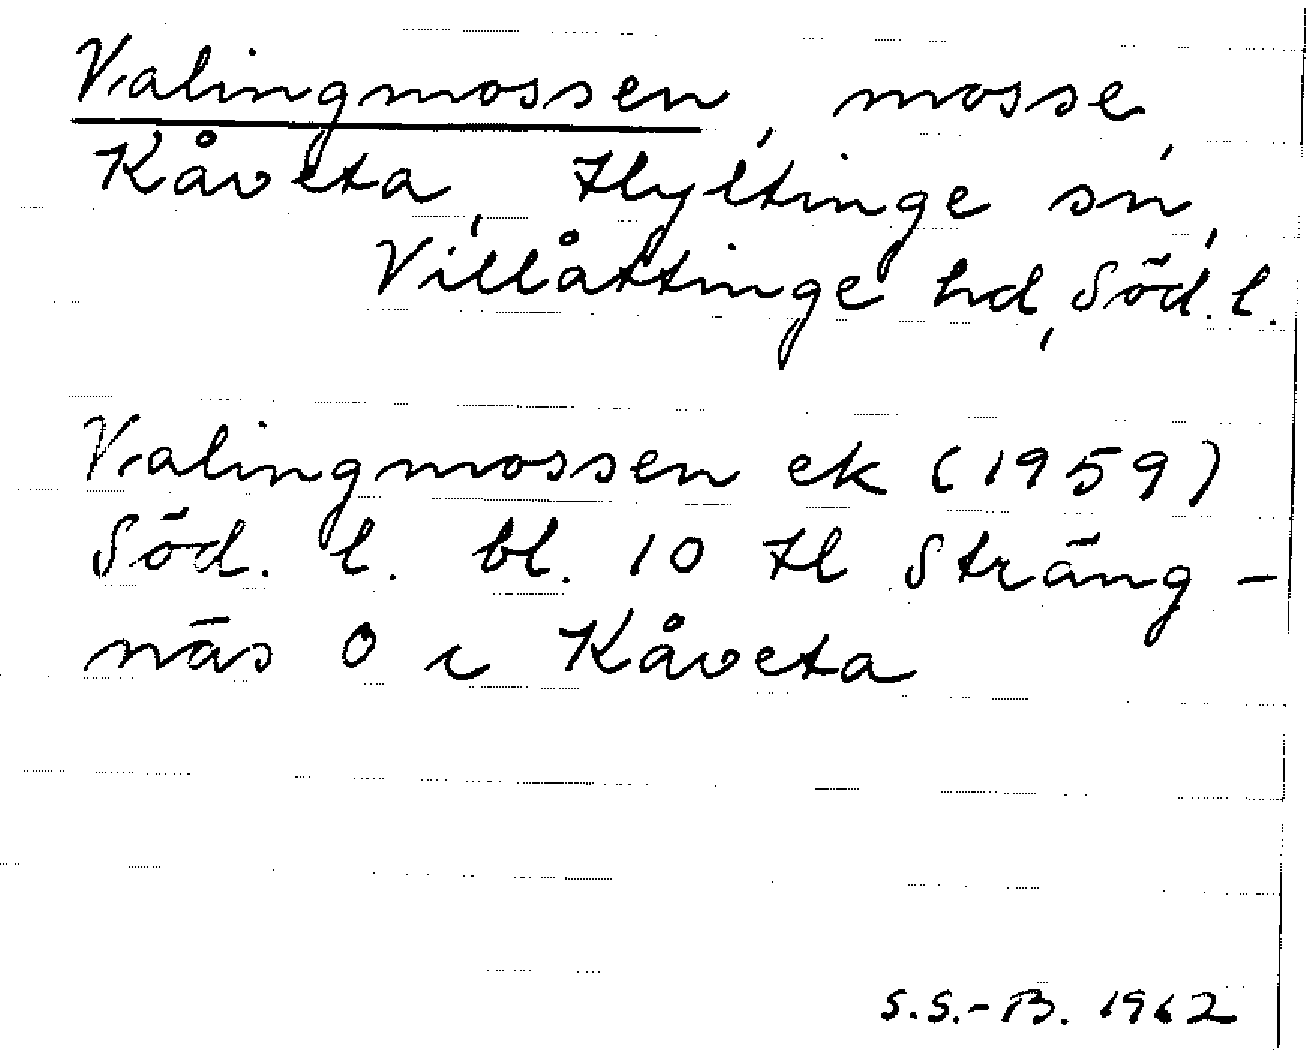 Valingmossen, mosse,
Kåveta, Hyltinge sn,
Villåttinge hd, Söd. l.
Valingmossen ek (1959)
Söd. l. bl. 10 Hl Sträng-
näs O i Kåveta
S.S.-B. 1962